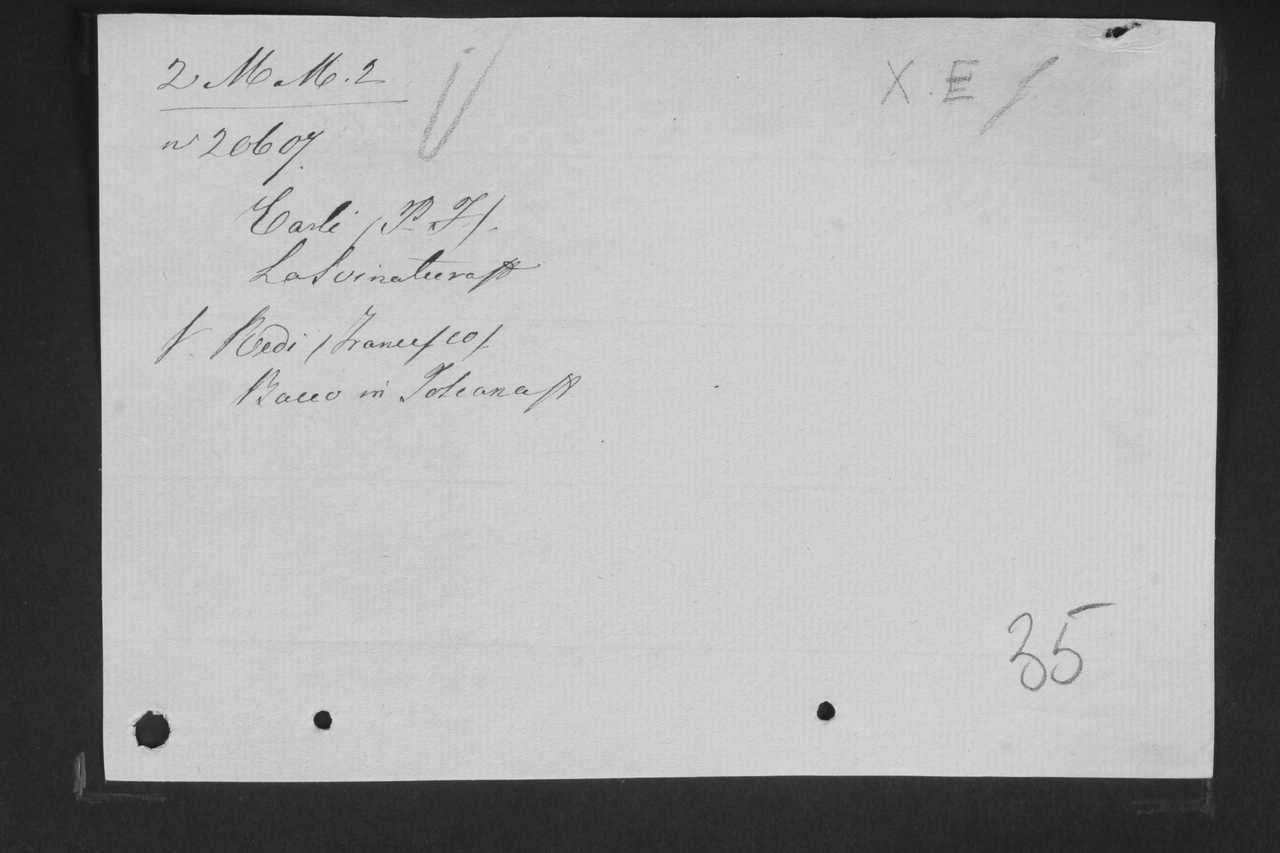 2 M M. 2
X. E
nº 20607.
Carli (P. F.).
La Svinatura &
V Redi (Francesco).
Bacco in Toscana &
35